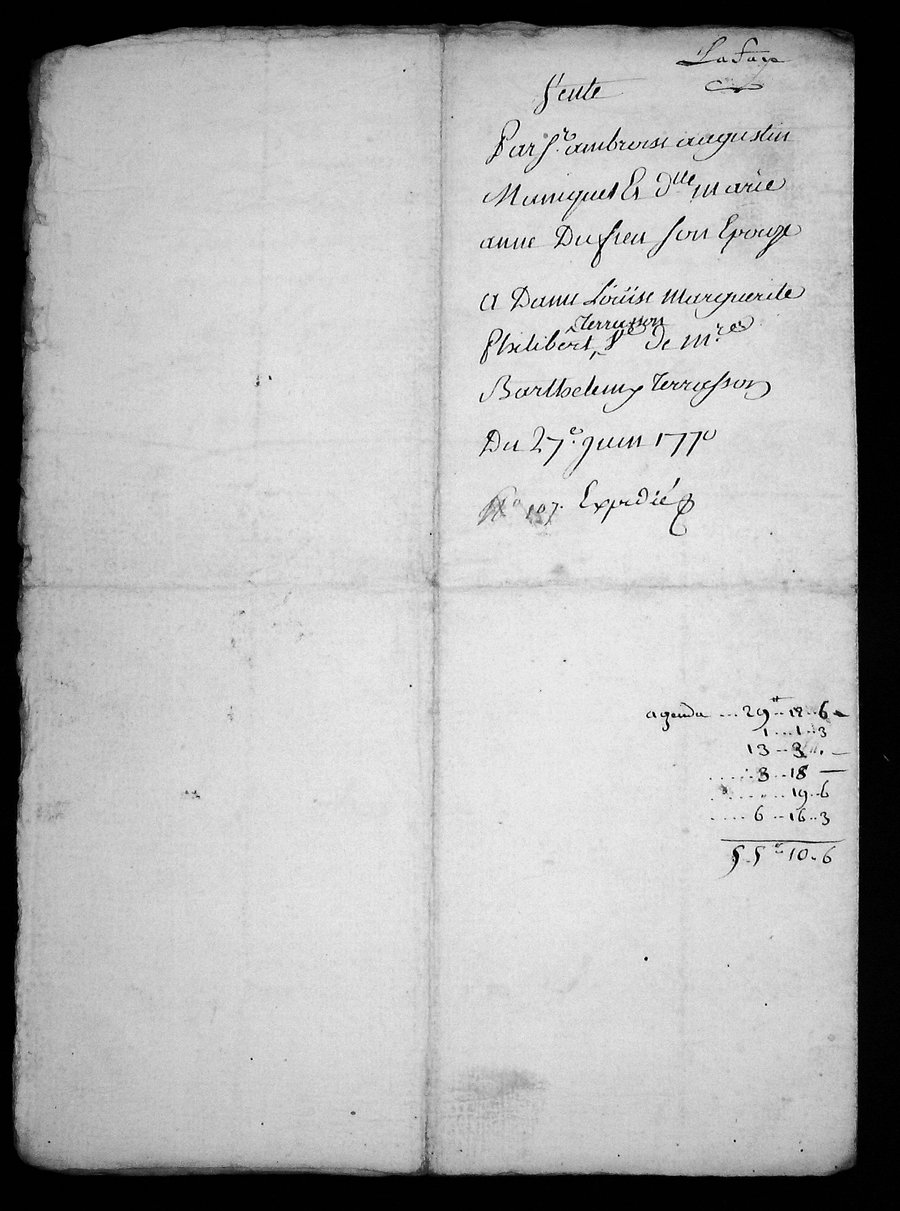 Lafaye
Vente
Par Sr. ambroise augustin
Muniguet Et dlle marie
anne Dufieu son Epouze
a Dame Loüise marguerite
Philibert Terrasson Ve de mre
Barthelemy Terrasson
Du 27e. juin 1770
No 107. Expedié
agenda ... 29tt .. 12 .. 6
1 ... 1 .. 3
13 .. 3 ..
..... 3 .. 18 —
...... 19 .. 6
.... 6 .. 16 .. 3
55tt 10 .. 6